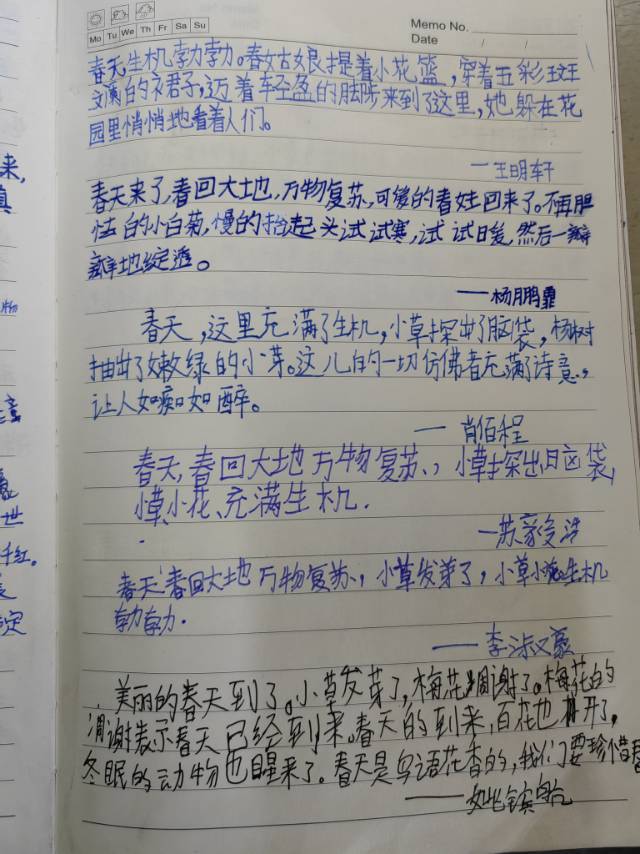 Memo No.
Mo Tu We Th Fr Sa Su
Date / /
春天生机勃勃。春姑娘提着小花篮，穿着五彩斑
斓的衣君子，迈着轻盈的脚步来到了这里，她躲在花
园里悄悄地看着人们。
—王明轩
春天来了，春回大地，万物复苏，可爱的春姓回来了。不再胆
怯的小白菊，慢的抬起头试试寒，试试日爱，然后一瓣
瓣地绽透。
——杨鹏霏
春天，这里充满了生机，小草探出了脑袋，杨树
抽出了嫩绿的小芽。这儿的一切仿佛者充满了诗意，
让人如痴如醉。
—肖佰程
春天，春回大地万物复苏、，小草探出脑袋，
小草、小花、充满生机．
—苏豪
春天春回大地万物复苏、，小草发芽了，小草小花生机
勃勃．
——李淑豪
美丽的春天到了。小草发芽了，梅花凋谢了。梅花的
凋谢表示春天已经到来。春天的到来，百花也开了，
冬眠的动物也醒来了。春天是鸟语花香的，我们要珍惜春
来，
真
物
意
世
千红。
定